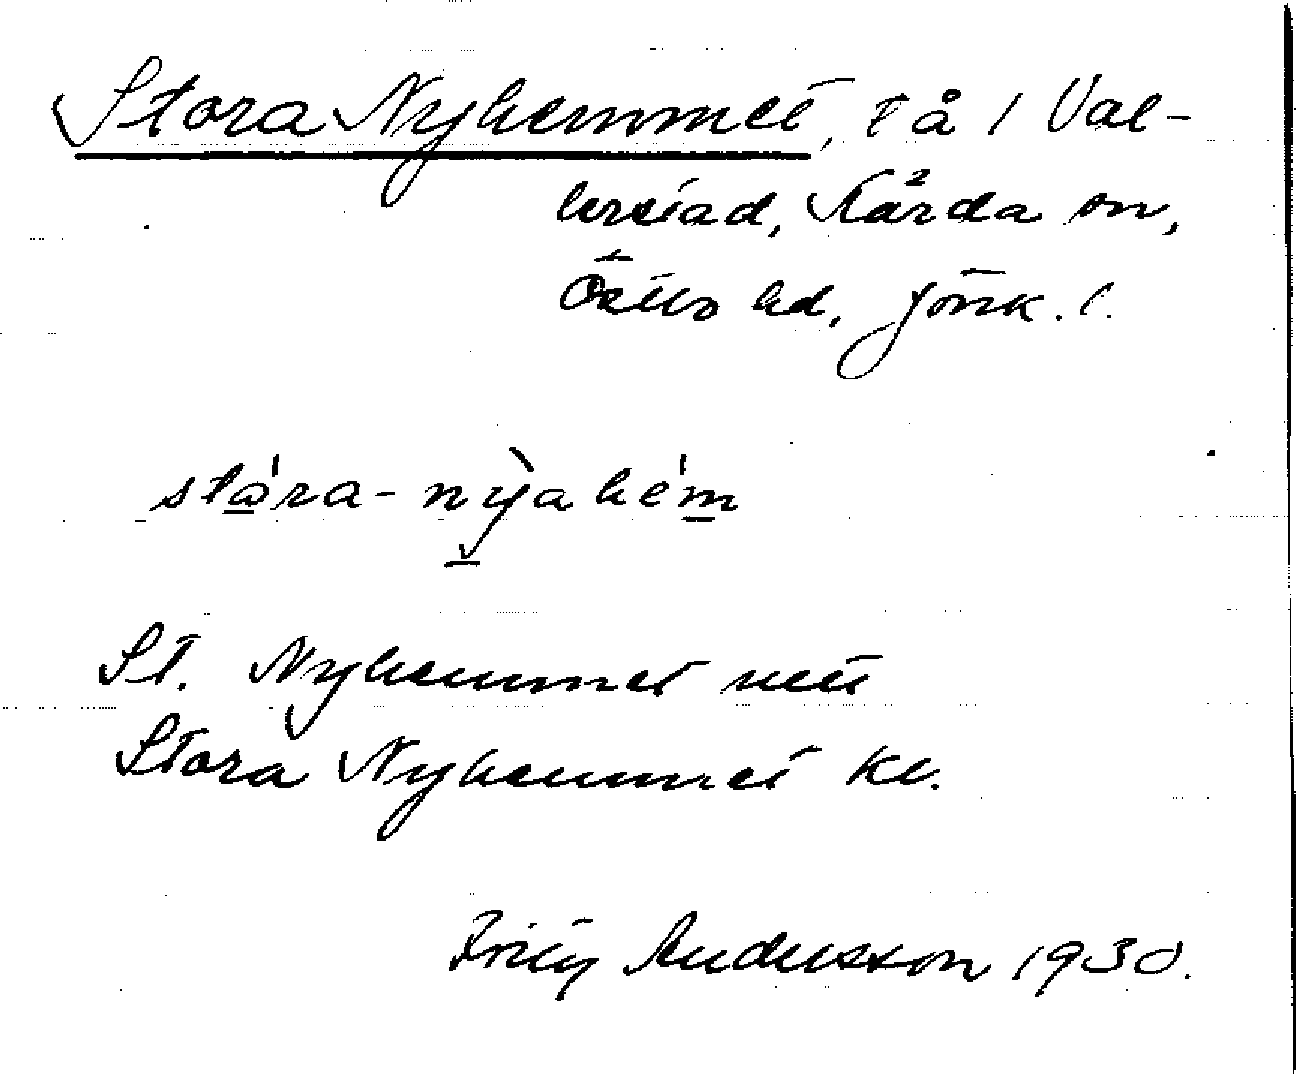 Stora Nyhemmet, tå i Val-
lerstad, Kårda sn,
Östbo hd, Jönk. l.
stɑ́ra-nỳahém
St. Nyhemmet
Stora Nyhemmet kt.
Fritz Andersson 1930.